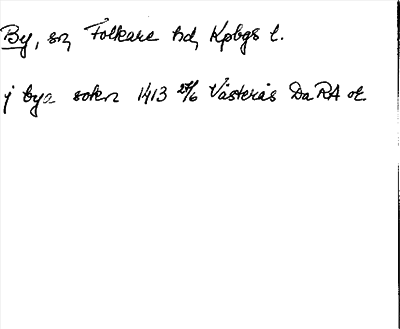 By, sn, Folkare hd, Kpbgs l.
j bya sokn 1413 27/6 Västerås Da RA or.